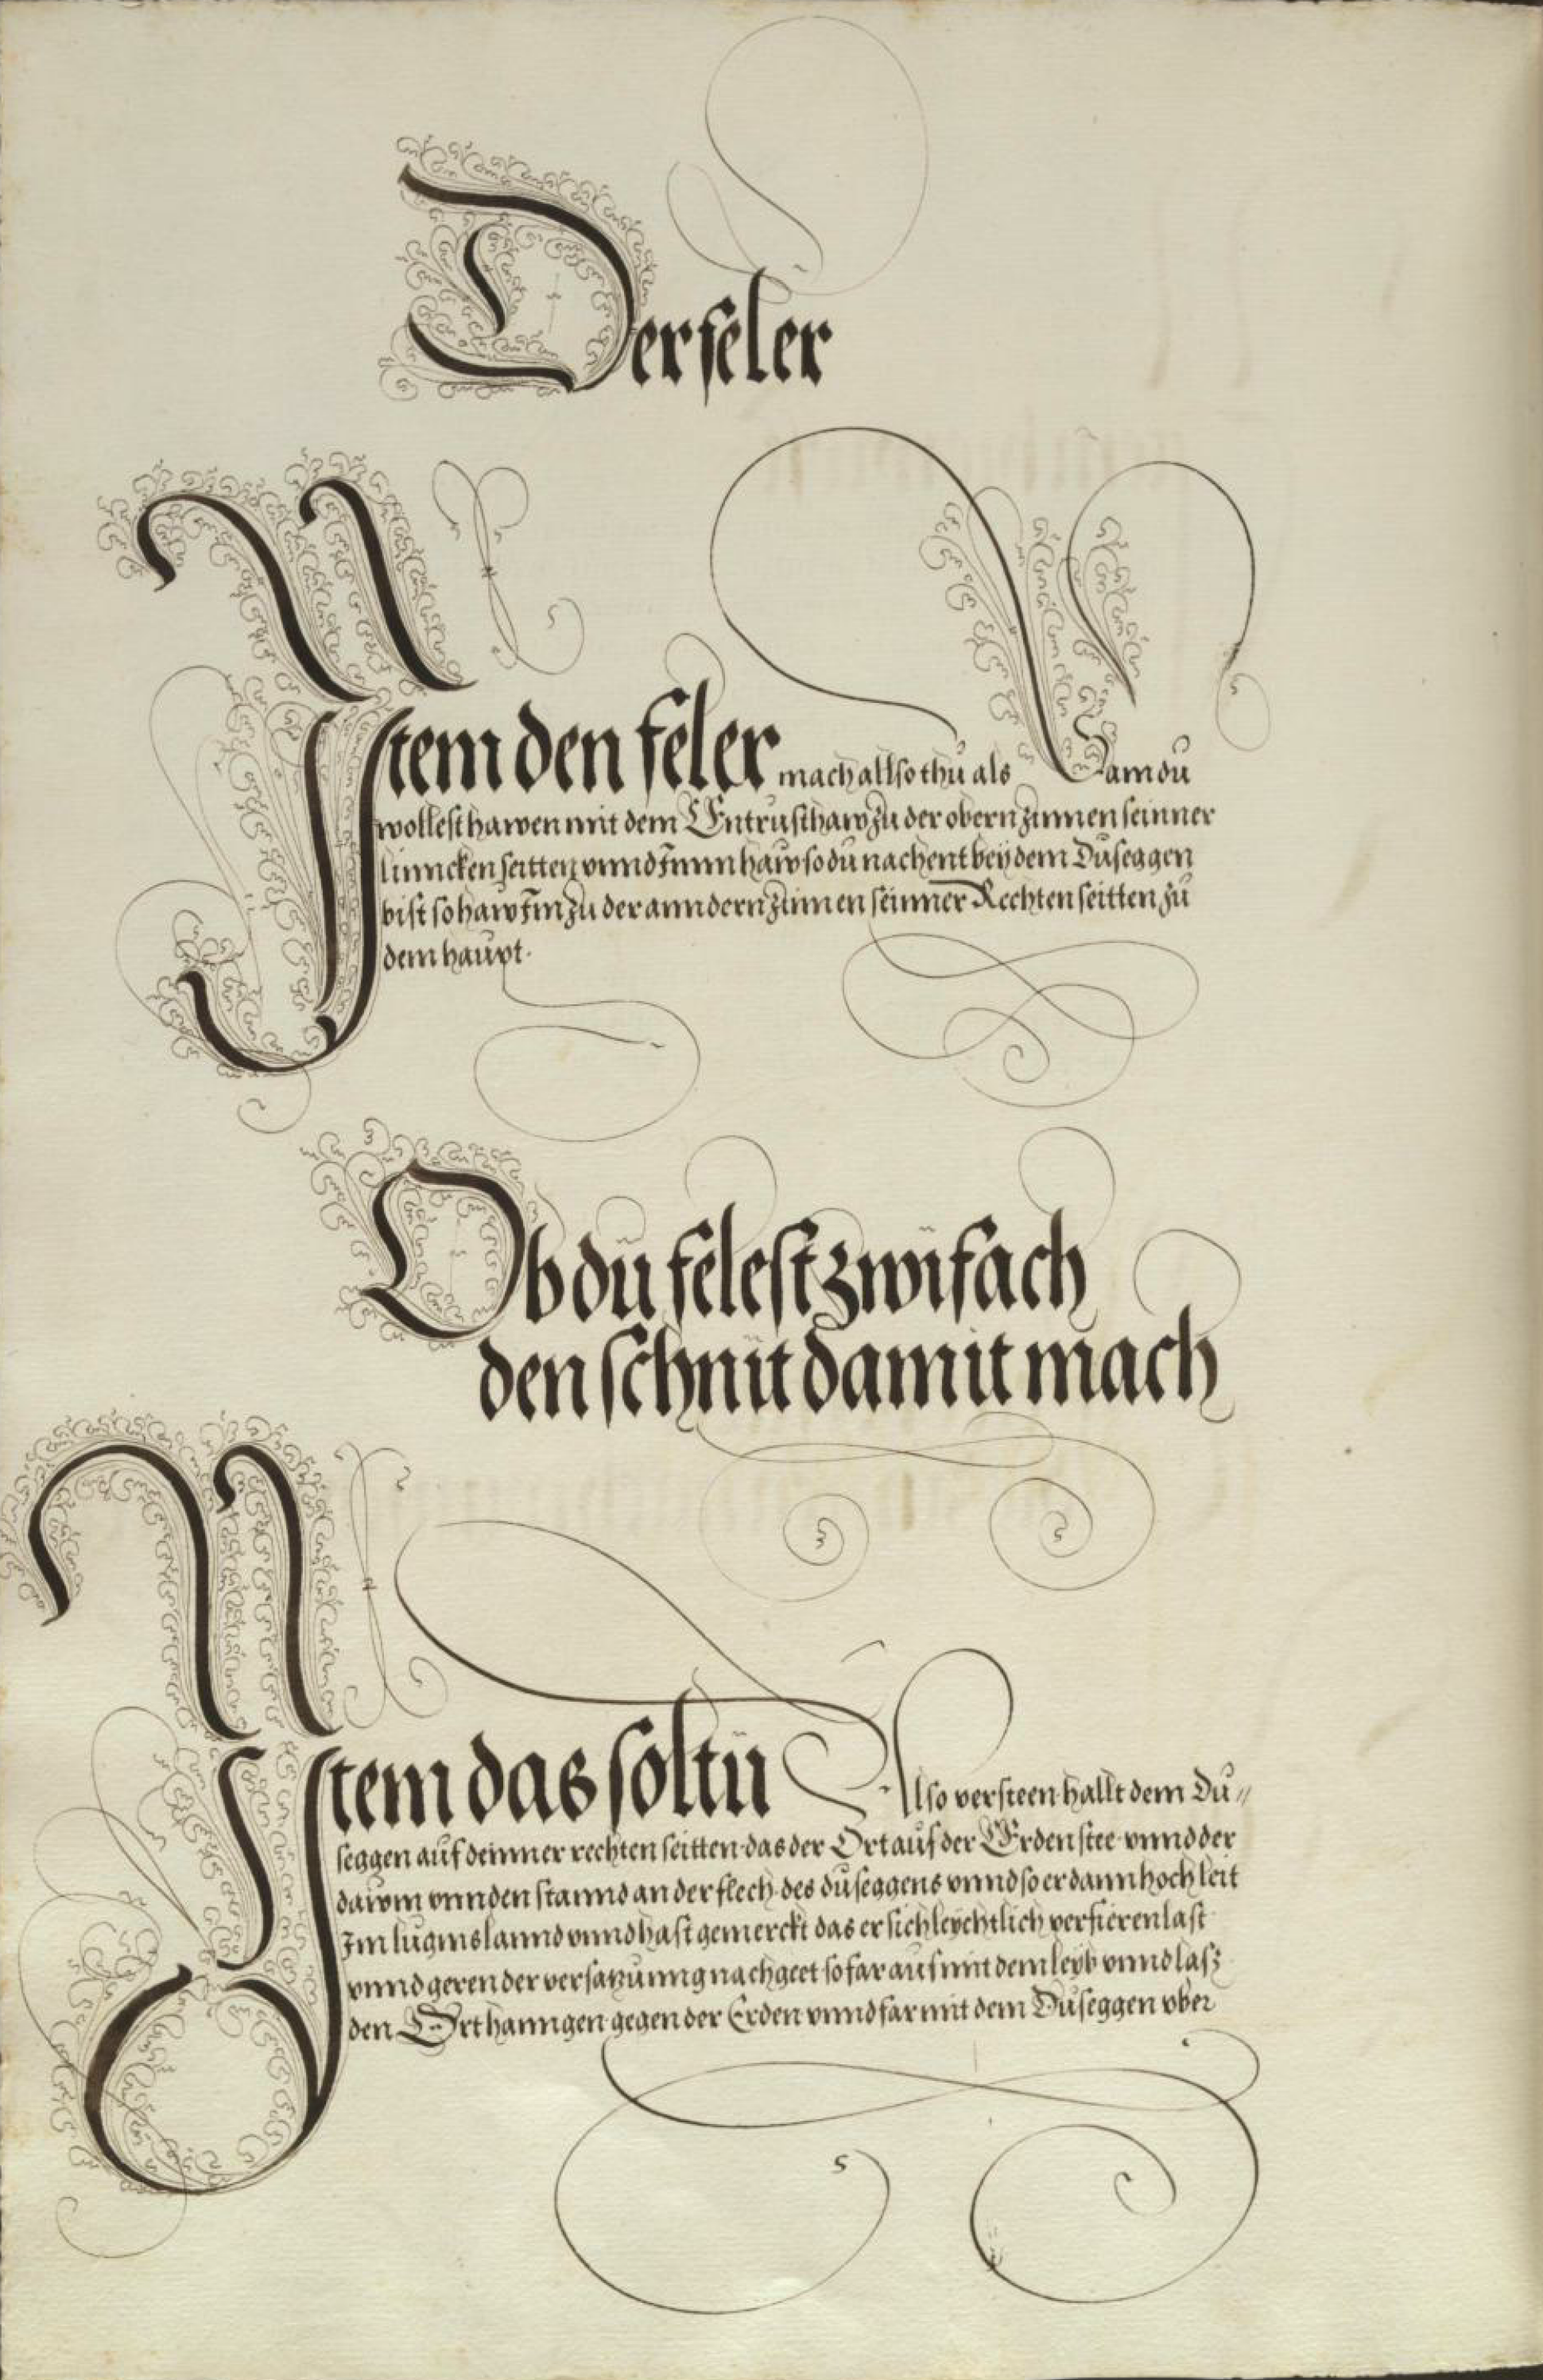 Der feler
Item den feler mach allso thu als Sam du
wollest hawen mit dem Entrusthaw zu der obern zinnen seinner
linncken seitten vnnd Imm haw so du nachent bey dem Duseggen
bist so haw Im zu der anndern zinnen seinner Rechten seitten zu
dem haupt.
Ob du felest zwifach
den schnit damit mach
Item das soltu Also versteen hallt dem Du〃
seggen auf deinner rechten seitten das der Ort auf der Erden stee vnnd der
dawm vnnden stannd an der flech des duseggens vnnd so er dann hoch leit
Im luginslannd vnnd hast gemerckt das er sich leychtlich verfieren last
vnnd geren der versatzunng nachgeet so far auf mit dem leyb vnnd lasz
den Ort hanngen gegen der Erden vnnd far mit dem Duseggen vber